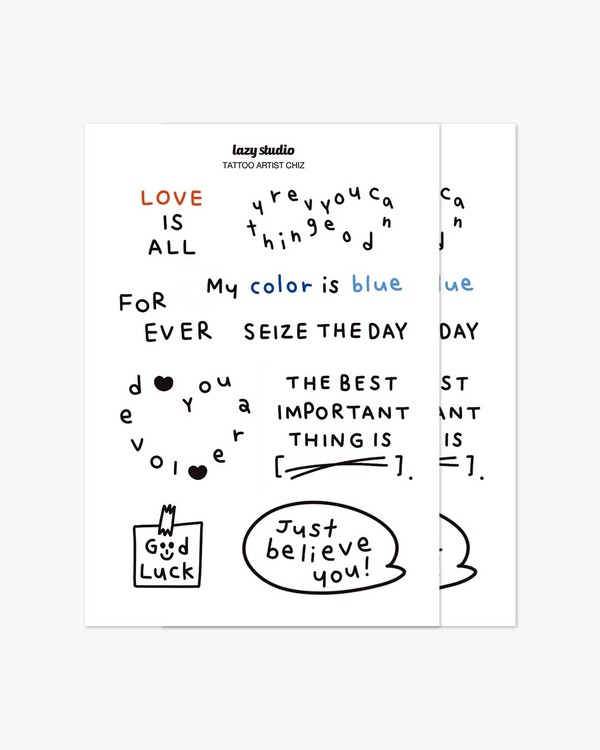 lazy studio
TATTOO ARTIST CHIZ
LOVE
IS
ALL
you can do everything
My color is blue
FOR
EVER
SEIZE THE DAY
you are ♥ loved ♥
THE BEST
IMPORTANT
THING IS
[ ].
Good
Luck
Just
believe
you!
ca
n
d
lue
DAY
ST
ANT
IS
].